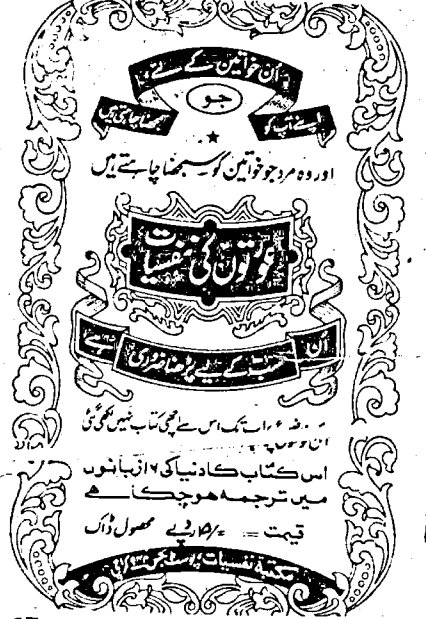 ان خواتین کے لئے
جو
اپنے آپ کو سمجھنا چاہتی ہیں
اور وہ مرد جو خواتین کو سمجھنا چاہتے ہیں
عورتوں کی نفسیات
ان سب کے لیے پڑھنا ضروری ہے
تک اس سے اچھی کتاب نہیں لکھی گئی
اس کتاب کا دنیا کی ۱۶ زبانوں
میں ترجمہ ہو چکا ہے
قیمت = /۱۵ روپے محصول ڈاک
مکتبہ نفسیات پوسٹ بکس کراچی